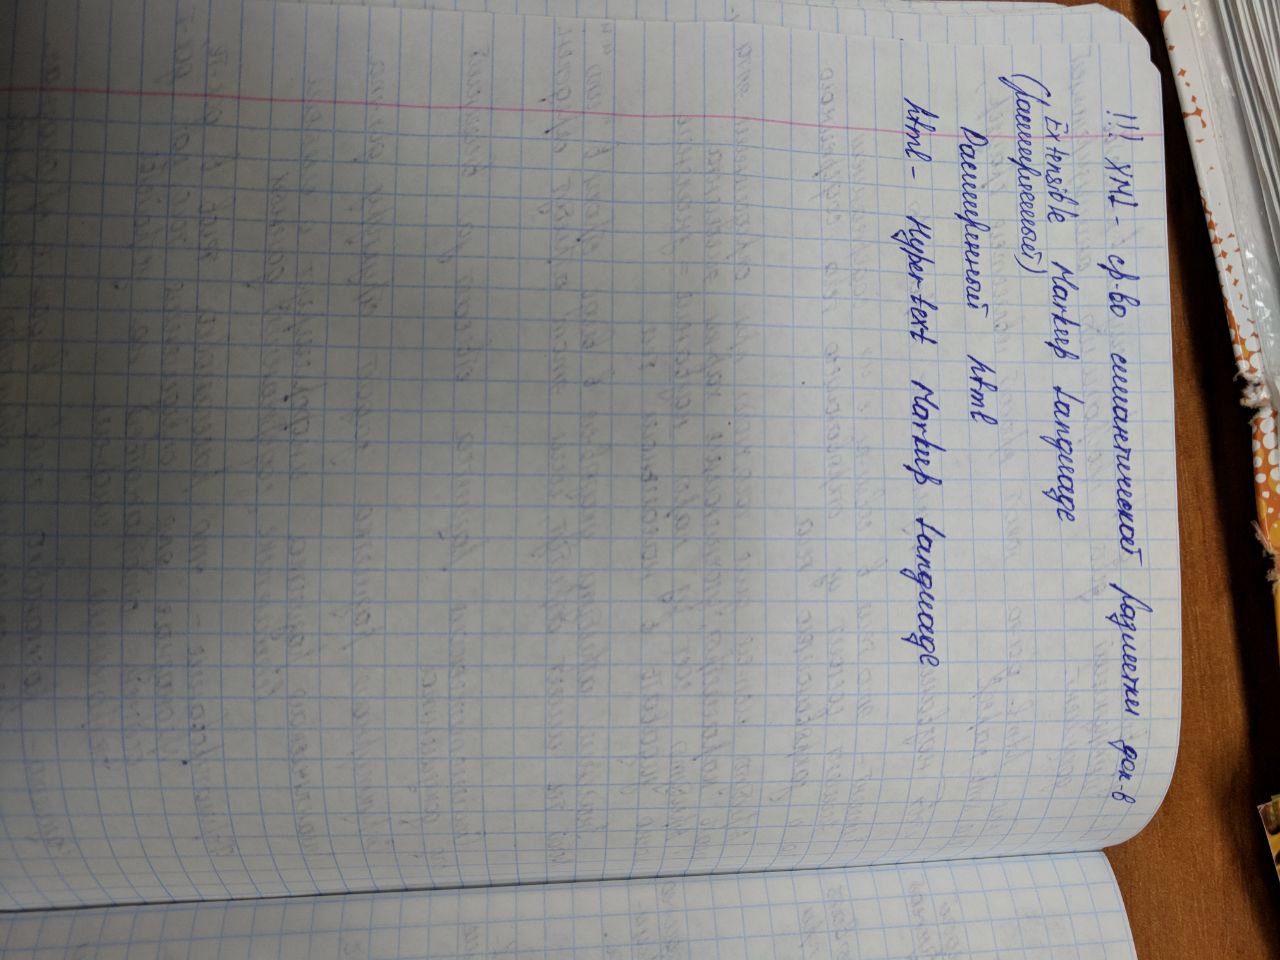 !!! XML - ср-во симантической разметки док-в
Extensible Markup Language
(расширенный)
Расширенный html
html - Hyper-text Markup Language